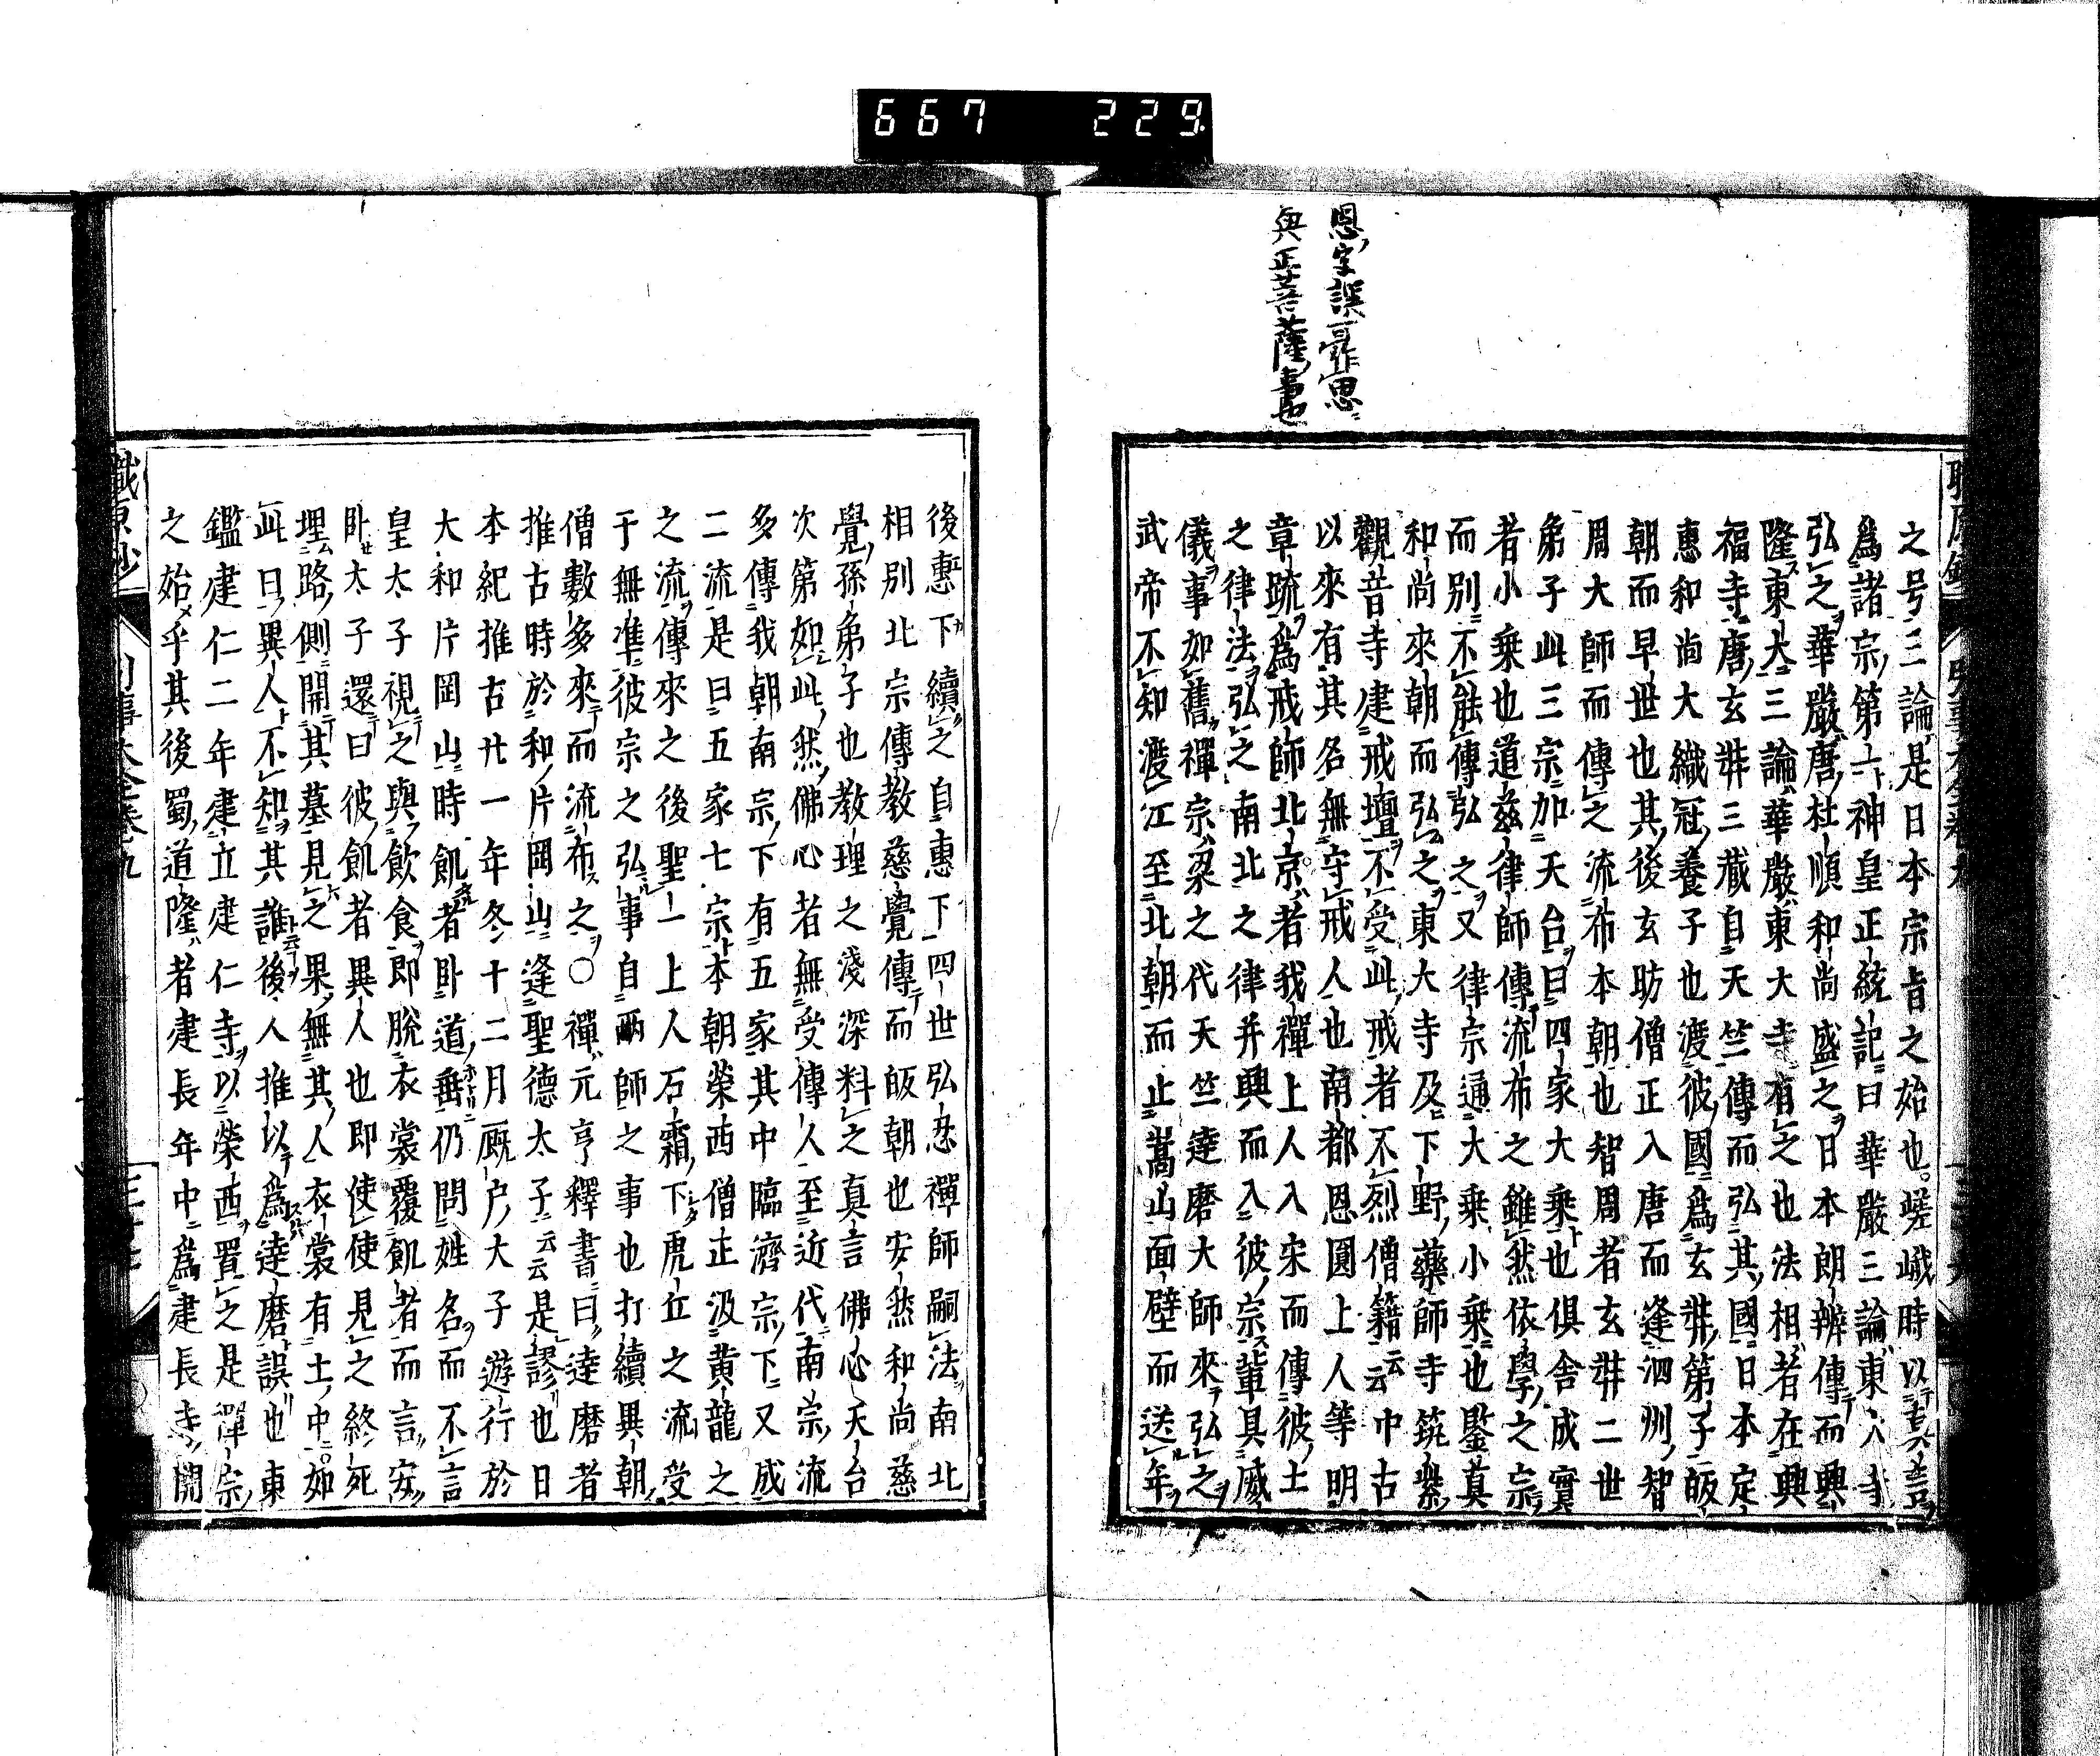 667 229
恩字誤可作思
與正菩薩事也
之号三論是日本宗旨之始也嵯峨時以真言
爲諸宗第一神皇正統記曰華嚴三論東大寺
弘之華嚴唐杜順和尚盛之日本朗辨傳而興
隆東大三論華嚴東大寺有之也法相者在興
福寺唐玄弉三藏自天竺傳而弘其國日本定
惠和尚大織冠養子也渡彼國爲玄弉第子皈
朝而早世也其後玄昉僧正入唐而逢泗州智
周大師而傳之流布本朝也智周者玄弉二世
弟子此三宗加天台曰四家大乘也倶舎成實
者小乘也道慈律師傳流布之雖然依學之宗
而別不能傳弘之又律宗通大乘小乘也鑒真
和尚來朝而弘之東大寺及下野藥師寺筑紫
觀音寺建戒壇不受此戒者不烈僧籍云云中古
以來有其名無守戒人也南都恩圓上人等明
章疏爲戒師北京者我禪上人入宋而傳彼土
之律法弘之南北之律并興而入彼宗輩具威
儀事如舊禪宗梁之代天竺達磨大師來弘之
武帝不知渡江至北朝而止嵩山面壁而送年
後惠下續之自惠下四世弘忍禪師嗣法南北
相別北宗傳教慈覺傳而皈朝也安然和尚慈
覺孫弟子也教理之淺深料之真言佛心天台
次第如此然佛心者無受傳人至近代南宗流
多傳我朝南宗下有五家其中臨濟宗下又成
二流是曰五家七宗本朝榮西僧正汲黄龍之
之流傳來之後聖一上人石霜下虎丘之流受
于無準彼宗之弘事自兩師之事也打續異朝
僧數多來而流布之○禪元亨釋書曰達磨者
推古時於和片岡山逢聖德太子云云是謬也日
本紀推古廿一年冬十二月廐户大子遊行於
大和片岡山時飢者卧道垂仍問姓名而不言
皇太子視之與飲食即脱衣裳覆飢者而言安
卧太子還曰彼飢者異人也即使使見之終死
埋路側開其墓見之果無其人衣裳有土中如
此曰異人不知其誰後人推以爲達磨誤也東
鑑建仁二年建立建仁寺以榮西置之是禪宗
之始乎其後蜀道隆者建長年中爲建長寺開